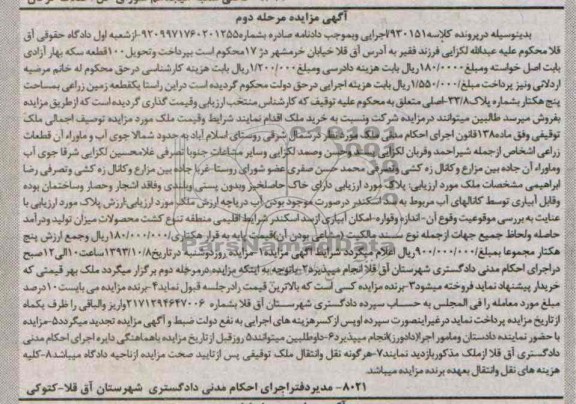 آگهی مزایده مرحله دوم
بدینوسیله درپرونده کلاسه ۹۳۰۱۵۱/اجرایی وبموجب دادنامه صادره بشماره ۹۲۰۹۹۷۱۷۶۰۲۰۱۲۵۵-ازشعبه اول دادگاه حقوقی آق
قلا محکوم علیه عبدالله لکزایی فرزند فقیر به آدرس آق قلا خیابان خرمشهر دژ ۱۷ محکوم است بپرداخت وتحویل ۱۰۰قطعه سکه بهار آزادی
بابت اصل خواسته ومبلغ ۱۸۰/۰۰۰۰ریال بابت هزینه دادرسی ومبلغ ۱/۲۰۰/۰۰۰ریال بابت هزینه کارشناسی درحق محکوم له خانم مرضیه
اردلانی ونیز پرداخت مبلغ ۱/۵۵۰/۰۰۰ریال بابت هزینه اجرایی درحق دولت محکوم گردیده است دراین راستا یکقطعه زمین زراعی بمساحت
پنج هکتار بشماره پلاک ۳۳/۸-اصلی متعلق به محکوم علیه توقیف که کارشناس منتخب ارزیابی وقیمت گذاری گردیده است که ازطریق مزایده
بفروش میرسد طالبین میتوانند درمزایده شرکت ونسبت به خرید ملک اقدام نمایند شرایط وقیمت ملک مورد مزایده توصیف اجمالی ملک
توقیفی وفق ماده ۱۳۸قانون اجرای احکام مدنی شرقی روستای اسلام آباد به حدود شمالا جوی آب و ماوراء آن قطعات
زراعی اشخاص ازجمله شیراحمد وقربان لکزایی احمد وحسن وصمد لکزایی وسایر مشاعات جنوبا تصرفی غلامحسین لکزایی شرقا جوی آب
وماوراء آن جاده بین مزارع وکانال زه کشی وتصرفی محمد حسن صفری عضو شورای روستا-غربا جاده بین مزارع وکانال زه کشی وتصرفی رضا
ابراهیمی مشخصات ملک مورد ارزیابی: پلاک مورد ارزیابی دارای خاک حاصلخیز وبدون پستی وبلندی وفاقد اشجار وحصار وساختمان بوده
وقابل آبیاری توسط کانالهای آب مربوط به سد اسکندر درصورت موجود بودن آب دریاچه ارزش ملک مورد ارزیابی:ارزش پلاک مورد ارزیابی با
عنایت به بررسی موقعیت وقوع آن-اندازه وقواره-امکان آبیاری ازسد اسکندر شرایط اقلیمی منطقه تنوع کشت محصولات میزان تولید ودرآمد
حاصله ولحاظ جمیع جهات ازجمله نوع سند مالکیت (مشاعی بودن آن)قیمت پایه به قرار هکتاری/۱۸۰/۰۰۰/۰۰۰ریال وجمع ارزش پنج
هکتار مجموعا بمبلغ/۹۰۰/۰۰۰/۰۰۰ریال اعلام میگردد شرایط آگهی مزایده ۱-مزایده روزدوشنبه درتاریخ ۱۳۹۳/۱۰/۸ازساعت ۱۰الی ۱۲صبح
دراجرای احکام مدنی دادگستری شهرستان آق قلا انجام میپذیرد ۲-باتوجه به اینکه مزایده درمرحله دوم برگزار میگردد ملک بهر قیمتی که
خریدار پیشنهاد نماید فروخته میشود ۳-برنده مزایده کسی است که بالاترین قیمت رادرجلسه قبول نماید ۴-برنده مزایده می بایست ۱۰درصد
مبلغ مورد معامله را فی المجلس به حساب سپرده دادگستری شهرستان آق قلا بشماره ۲۱۷۱۲۹۴۶۴۷۰۰۶واریز والباقی را ظرف یکماه
ازتاریخ مزایده پرداخت نماید درغیراینصورت سپرده اوپس ازکسرهزینه های اجرایی به نفع دولت ضبط و آگهی مزایده تجدید میگردد ۵-مزایده
با حضور نماینده دادستان ومامور اجرا(دادورز)انجام میپذیرد ۶-داوطلبین میتوانند ۵روز قبل از تاریخ مزایده باهماهنگی دایره اجرای احکام مدنی
دادگستری آق قلا ازملک مذکوربازدید نمایند ۷-هرگونه نقل وانتقال ملک توقیفی پس ازتایید صحت مزایده ازناحیه دادگاه میباشد ۸-کلیه
هزینه های نقل وانتقال بعهده برنده مزایده میباشد
۸۰۲۱- مدیر دفتر اجرای احکام مدنی دادگستری شهرستان آق قلا-کتوکی
ParsNamadData